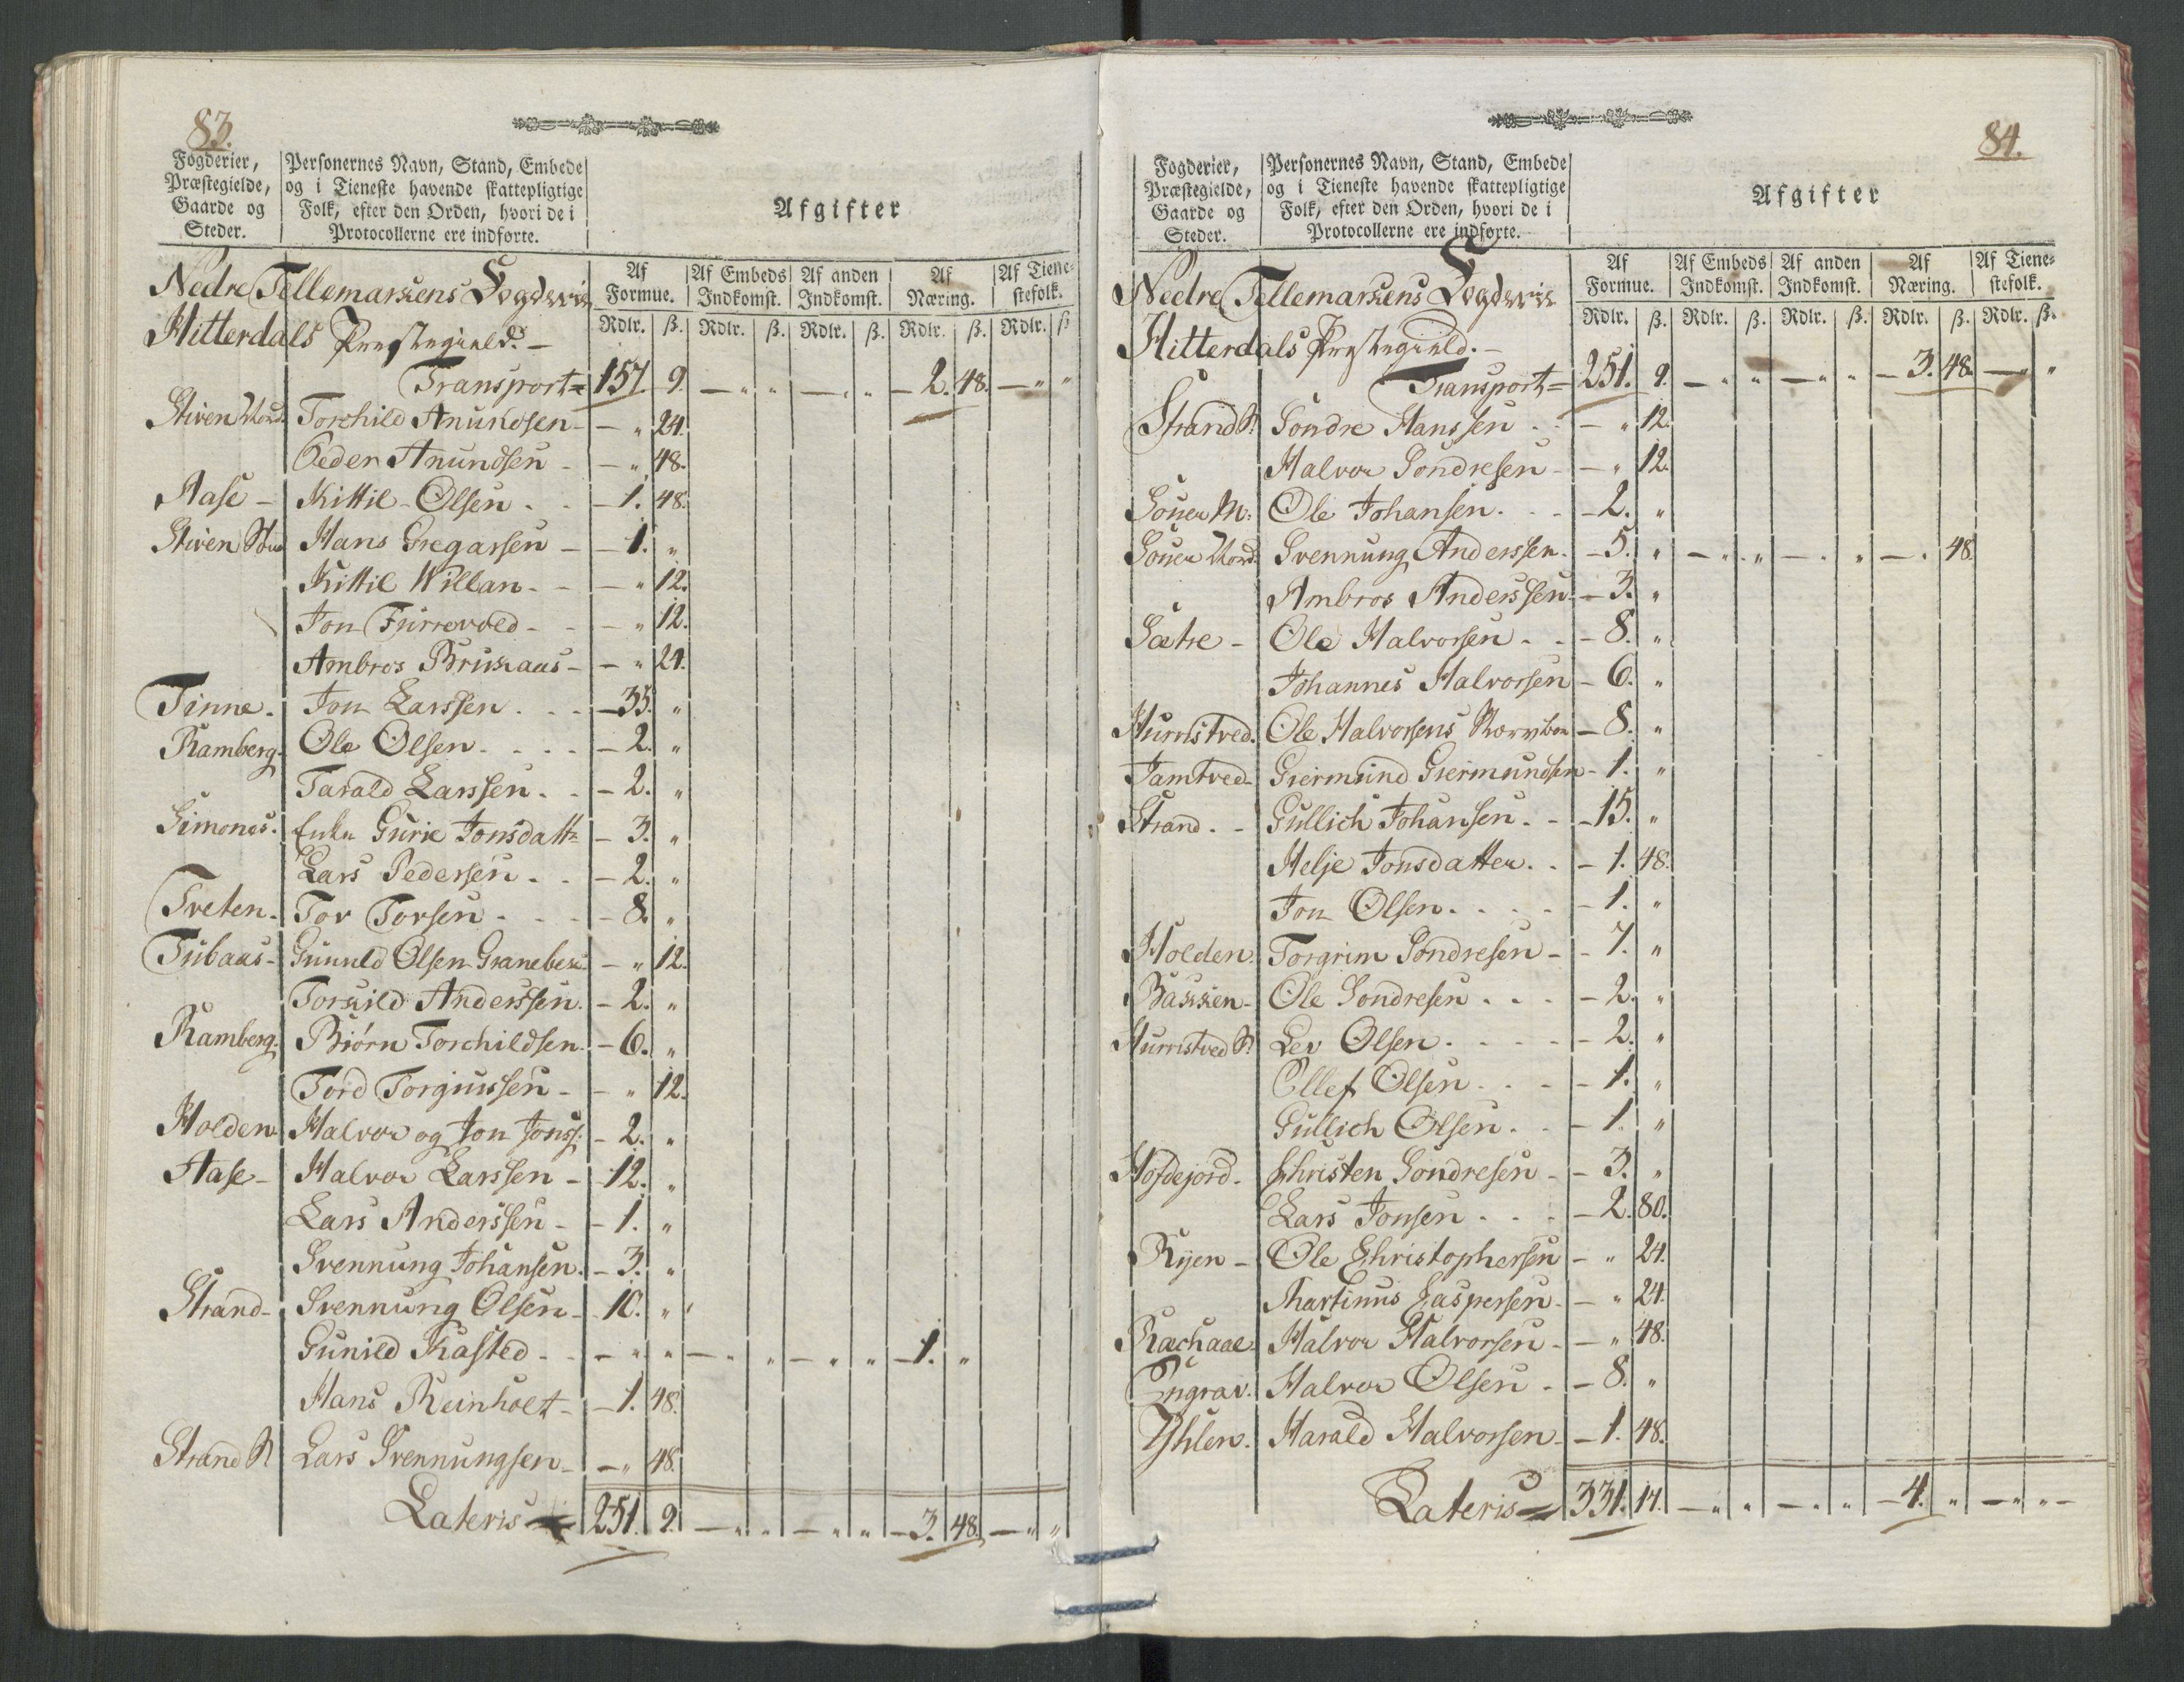 83.
Fogderier, Præstegielde, Gaarde og Steder.
Personernes Navn, Stand, Embede og i Tieneste havende skattepligtige Folk, efter den Orden, hvori de i Protocollerne ere indførte.
Afgifter
Af Formue. Af Embeds Indkomst. Af anden Indkomst. Af Næring. Af Tienestefolk.
Rdlr. ß. Rdlr. ß. Rdlr. ß. Rdlr. ß. Rdlr. ß
Nedre Tellemarkens Fogderie
Hitterdals Præstegield. –
Transport = 157. 9. – „ „ – „ „ – 2. 48. – „ „
Stiven Nord. Torchild Anundsen – – „ 24.
Peder Anundsen – – „ 48.
Aase – Kittil Olsen . – 1. 48.
Stiven Hans Gregarsen – – 1. „
Kittil Willan – – „ 12.
Jon Furrevold – – „ 12.
Ambros Brukaas – – „ 24.
Tinne. Jon Larssen . . – 35. „
Ramberg. Ole Olsen . . . – 2. „
Tarald Larssen . . – 2. „
Simones. Enke Gurie Jonsdattr – 3. „
Lars Pedersen . . – 2. „
Treten. Tor Torsen . . – 8. „
Tubaas – Gunuld Olsen Granebek – „ 12.
Torkild Anderssen. – 2. „
Ramberg. Biørn Torchildsen. – 6. „
Tord Torgiussen – – „ 12.
Holden Halvor og Jon Jonss: – 2. „
Aase – Halvor Larssen – – 12. „
Lars Anderssen – – 1. „
Svennung Johansen. – 3. „
Strand – Svennung Olsen – 10. „
Gunild Rasted – – „ „ – „ „ – „ „ – 1. „
Hans Reinholt – – 1. 48.
Strand N. Lars Svennungsen – – „ 48.
Lateris = 251. 9. – „ „ – „ „ – 3. 48. – „ „
84.
Fogderier, Præstegielde, Gaarde og Steder.
Personernes Navn, Stand, Embede og i Tieneste havende skattepligtige Folk, efter den Orden, hvori de i Protocollerne ere indførte.
Afgifter
Af Formue. Af Embeds Indkomst. Af anden Indkomst. Af Næring. Af Tienestefolk.
Rdlr. ß. Rdlr. ß. Rdlr. ß. Rdlr. ß. Rdlr. ß.
Nedre Tellemarkens Fogderie
Hitterdals Præstegield. –
Transport = 251. 9. – „ „ – „ „ – 3. 48. – „ „
Strand N. Søndre Hanssen . – „ 12.
Halvor Søndresen – – „ 12.
Souer M: Ole Johansen. . – 2. „
Souer Nord. Svennung Anderssen. – 5. „ – „ „ – „ „ – „ 48.
Ambros Anderssen – 3. „
Sætre – Ole Halvorsen . . – 8. „
Johannes Halvorsen – 6. „
Hurristved. Ole Halvorsens – 8. „
Jamtved – Giermund Giermundsen – 1. „
Strand . – Gullich Johansen . – 15. „
Helje Jonsdatter . . – 1. 48.
Jon Olsen . . . – 1. „
Holden. Torgrim Søndresen – – 7. „
Bakken – Ole Søndresen . . – 2. „
Hurristved N. Lev Olsen . . . – 2. „
Ellef Olsen . . – 1. „
Gullich Olsen . – 1. „
Hofdejord – Christen Søndresen – – 3. „
Lars Jonsen . . . – 2. 80.
Ryen – Ole Christophersen – „ 24.
Martinus Jaspersen – – „ 24.
Rachaae. Halvor Halvorsen – – „ 48.
Engrav. Halvor Olsen . – 8. „
Yhlen. Harald Halvorsen – – 1. 48.
Lateris = 331. 17. – „ „ – „ „ – 4. „ – „ „ –